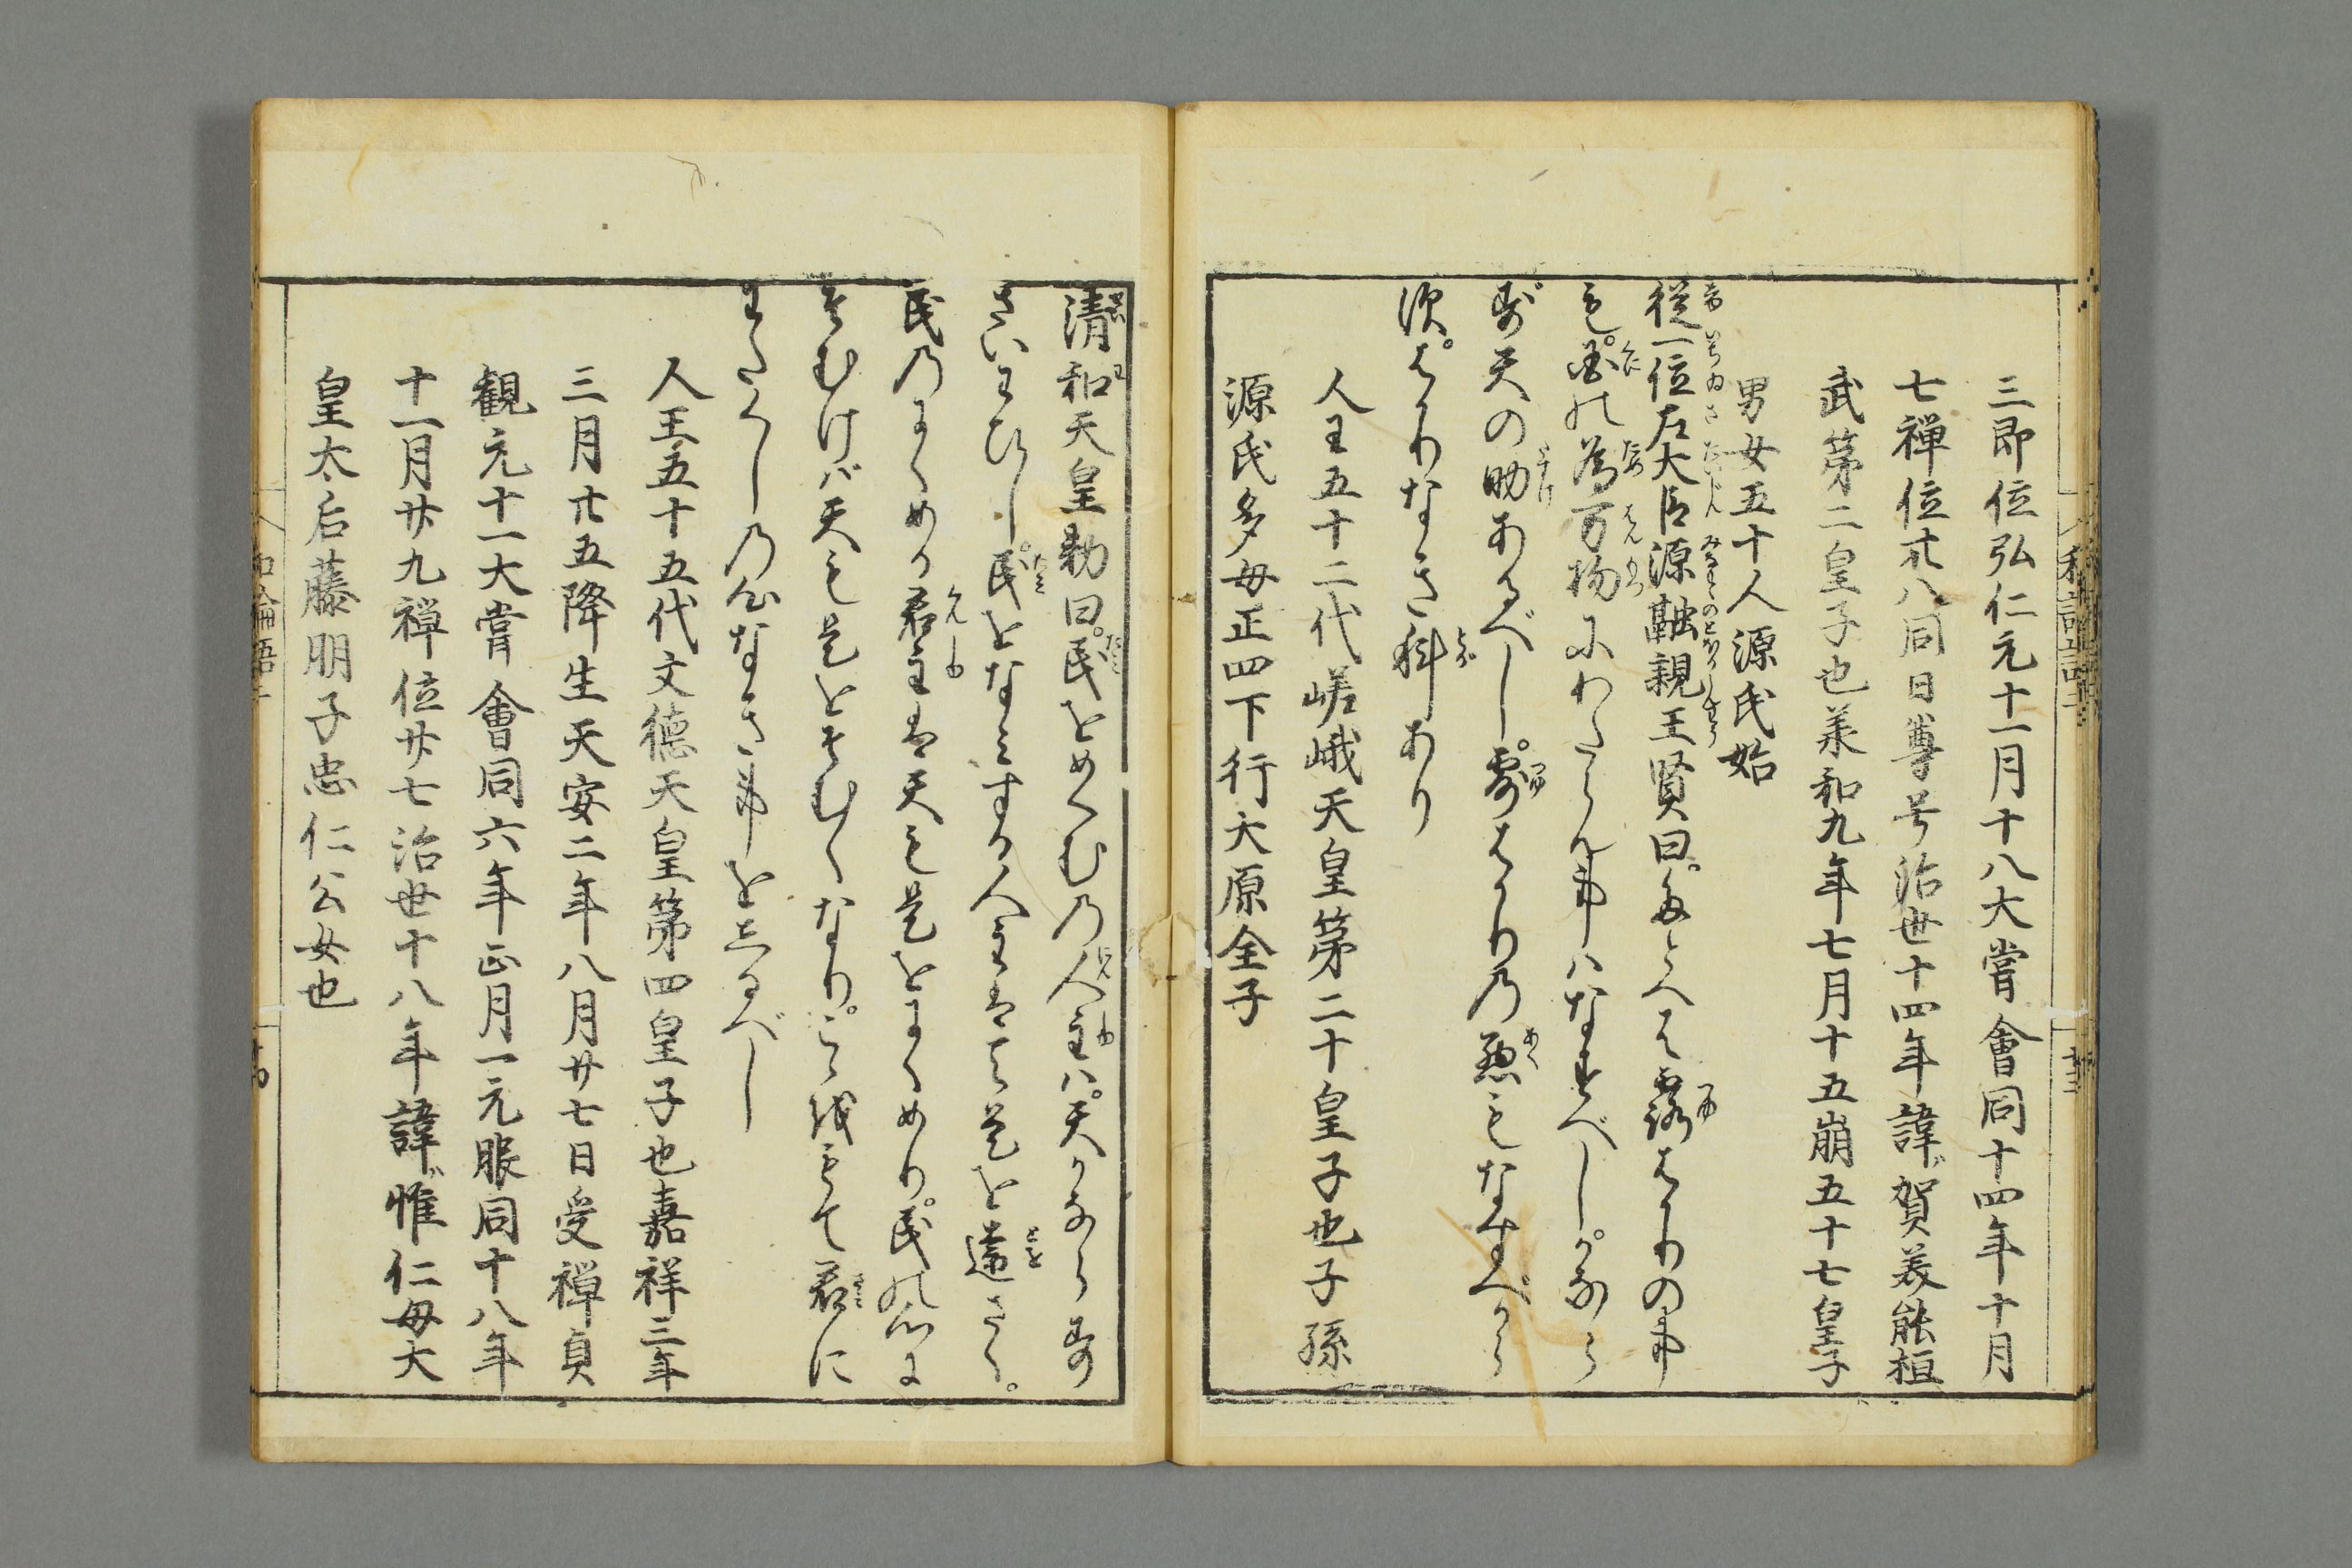 三即位弘仁元十一月十八大嘗會同十四年十月
七禪位卅八同日尊号治世十四年諱賀美能桓
武第二皇子也兼和九年七月十五崩五十七皇子
男女五十人源氏始
従一位左大臣源融親王賢曰。たとへは露はかりの事
も。国の為万物にわたらん事ハなすべし。かなら
ず天の助あるべし。露はかりの悪もなすべから
ず。はかりなき科あり
人王五十二代嵯峨天皇第二十皇子也子孫
源氏多母正四下行大原全子
清和天皇勅曰。民をめくむの人主ハ。天かならず
さいわひし。民をなみする人主は天是を遠さく。
民のにくめる君主は天も是をにくめり。民の心に
そむけバ天も是をそむくなり。こゝ以もて君に
わたくしの心なき事をしるべし
人王五十五代文徳天皇第四皇子也嘉祥三年
三月廿五降生天安二年八月廿七日受禪貞
観元十一大嘗會同六年正月一元服同十八年
十一月廿九禪位廿七治世十八年諱惟仁母大
皇太后藤明子忠仁公女也